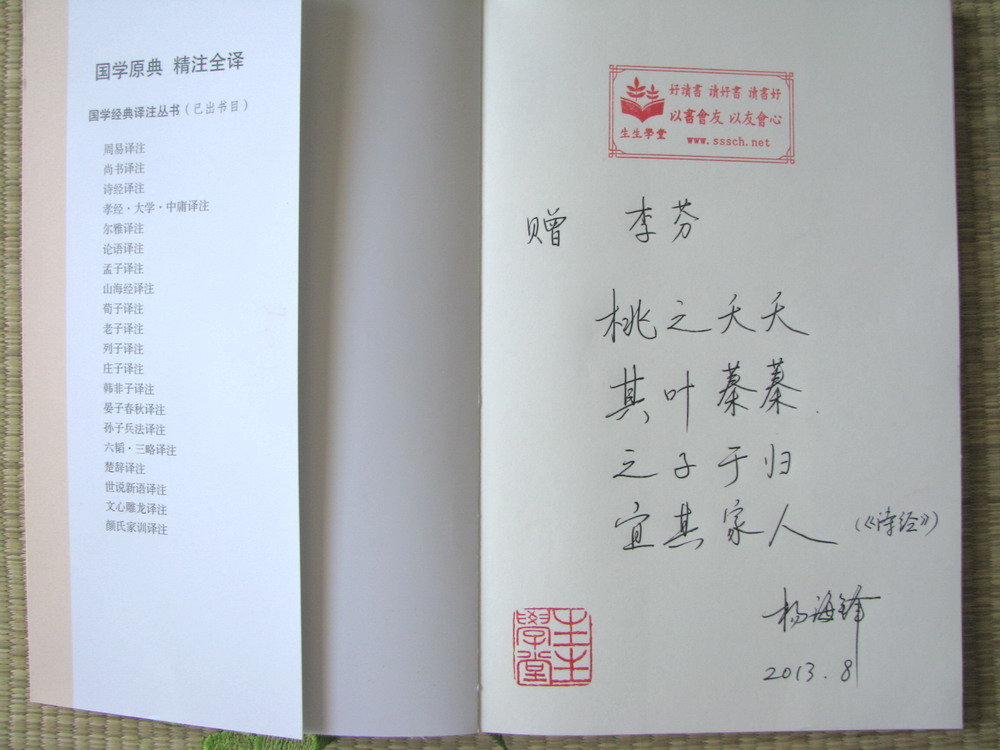 国学原典 精注全译
国学经典译注丛书(已出书目)
周易译注
尚书译注
诗经译注
孝经·大学·中庸译注
尔雅译注
论语译注
孟子译注
山海经译注
荀子译注
老子译注
列子译注
庄子译注
韩非子译注
晏子春秋译注
孙子兵法译注
六韬·三略译注
楚辞译注
世说新语译注
文心雕龙译注
颜氏家训译注
好读書 讀好書 讀書好
以書會友 以友會心
生生學堂
www.sssch.net
赠 李芬
桃之夭夭
其叶蓁蓁
之子于归
宜其家人(《诗经》)
杨海锋
2013.8
生生學堂